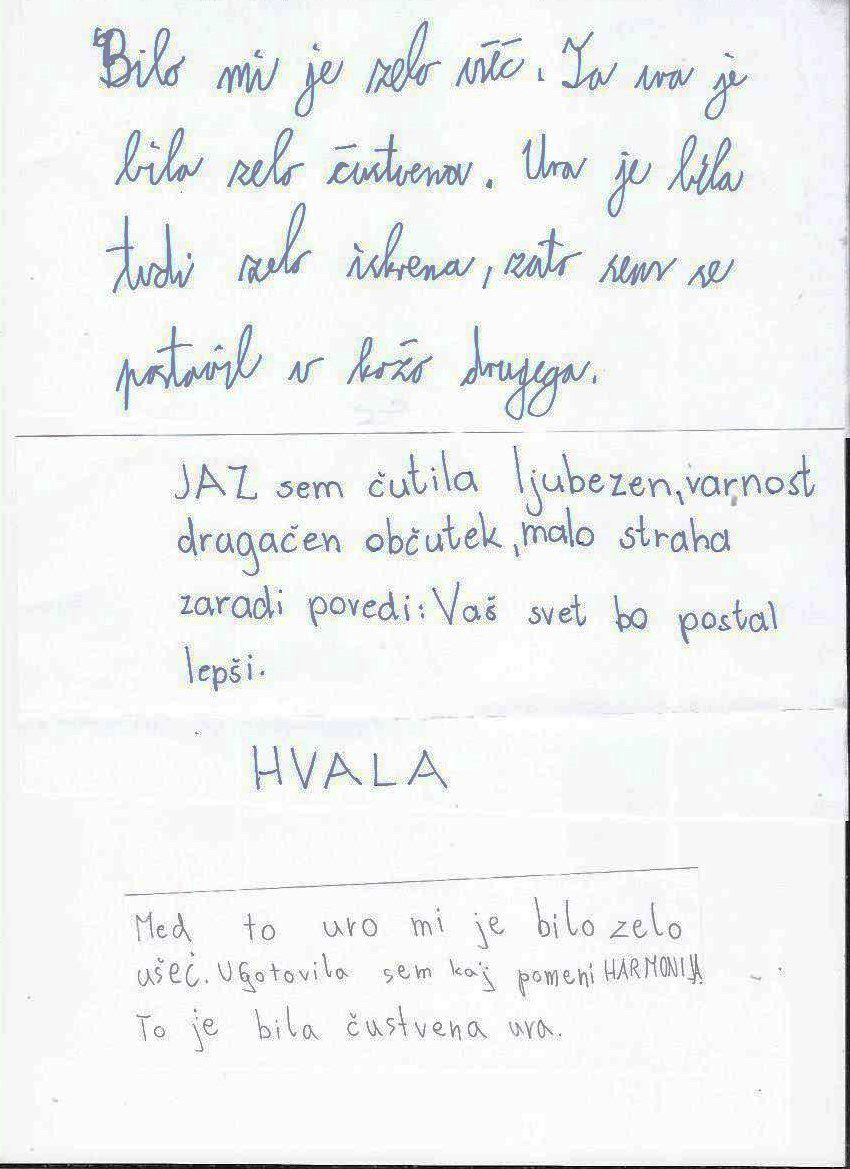 Bilo mi je zelo všeč. Ta ura je
bila zelo čustvena. Ura je bila
tudi zelo iskrena, zato sem se
postavil v kožo drugega.
JAZ sem čutila ljubezen, varnost
dragačen občutek, malo straha
zaradi povedi: Vaš svet bo postal
lepši.
HVALA
Med to uro mi je bilo zelo
ušeč. Ugotovila sem kaj pomeni HARMONIJA
To je bila čustvena ura.